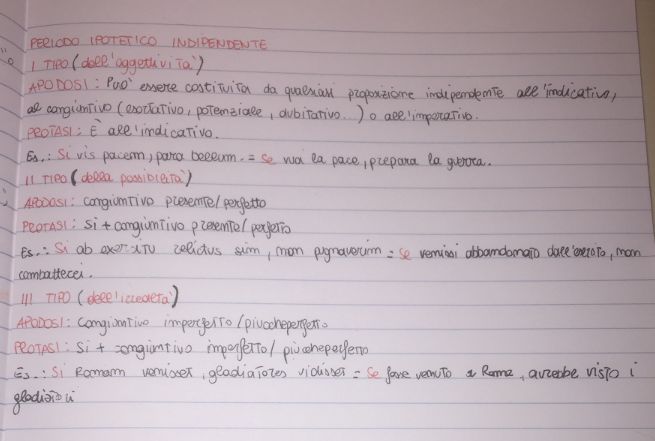 PERIODO IPOTETICO INDIPENDENTE
I TIPO (dell'oggettività)
APODOSI: Può essere costituita da qualsiasi proposizione indipendente all'indicativo,
al congiuntivo (esortativo, potenziale, dubitativo...) o all'imperativo.
PROTASI: È all'indicativo.
Es.: Si vis pacem, para bellum. = Se vuoi la pace, prepara la guerra.
II TIPO (della possibilità)
APODOSI: congiuntivo presente/perfetto
PROTASI: si + congiuntivo presente/perfetto
Es.: Si ab exercitu relictus sim, non pugnaverim = se venissi abbandonato dall'esercito, non
combatterei.
III TIPO (dell'irrealtà)
APODOSI: Congiuntivo imperfetto/piuccheperfetto
PROTASI: Si + congiuntivo imperfetto/piuccheperfetto
Es.: Si Romam venisset, gladiatores vidisset = Se fosse venuto a Roma, avrebbe visto i
gladiatori